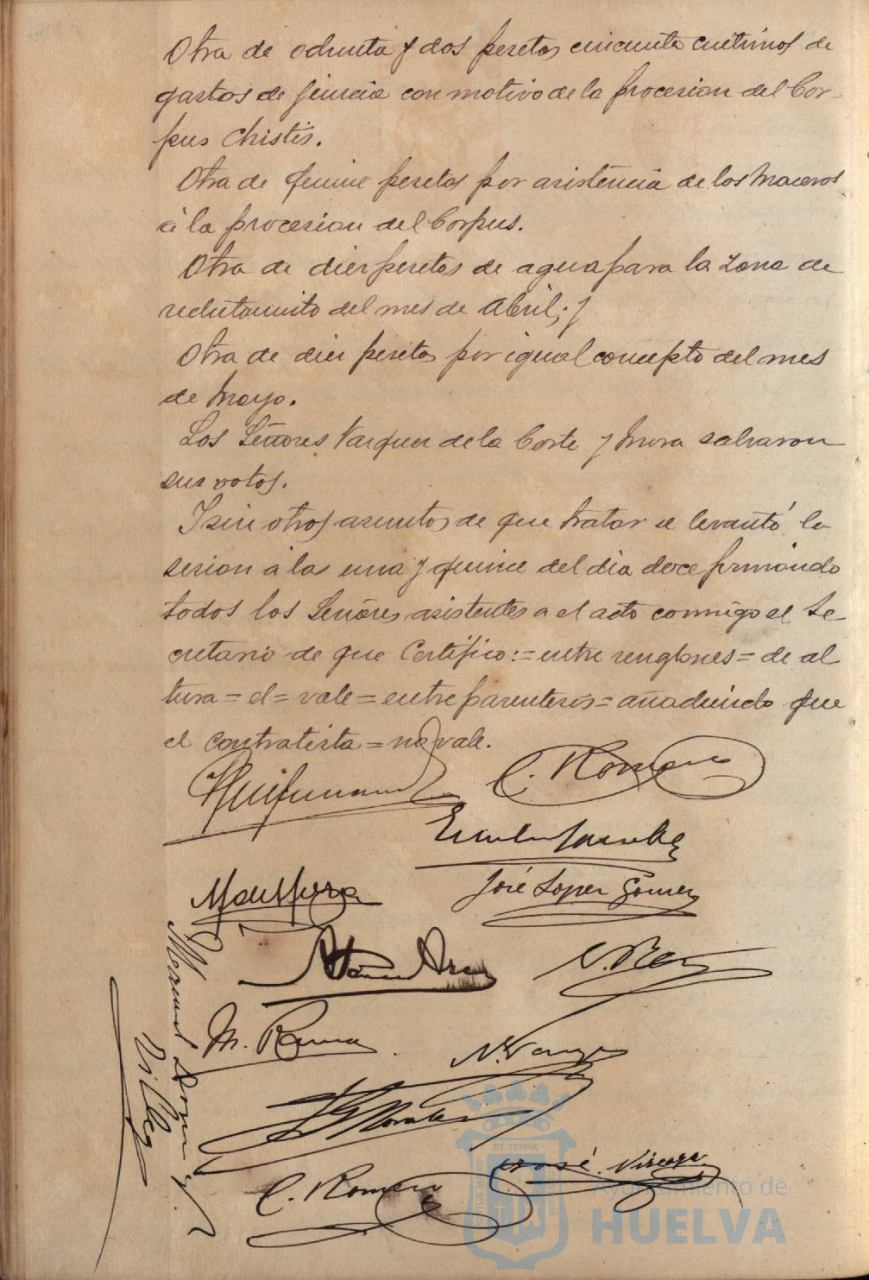 Otra de ochenta y dos pesetas cincuenta centimos de
gastos de juncia con motivo de la procesion del Cor-
pus Chistis.
Otra de quince pesetas por asistencia de los Maceros
á la procesion del Corpus.
Otra de diez pesetas de agua para la zona de
reclutamiento del mes de Abril; y
Otra de diez pesetas por igual concepto del mes
de Mayo.
Los Señores Vazquez de la Corte y Mora salvaron
sus votos.
Y sin otros asuntos de que tratar se levantó la
sesion á las una y quince del dia doce firmando
todos los Señores asistentes a el acto conmigo el Se-
cretario de que Certifico:=entre renglones=de al
tura=el=vale=entre parentesis=añadiendo que
el contratista=no vale.
C. Romero
José Lopez Gomez
M. Rama
Morales
C. Romero
José
Ayuntamiento de
HUELVA